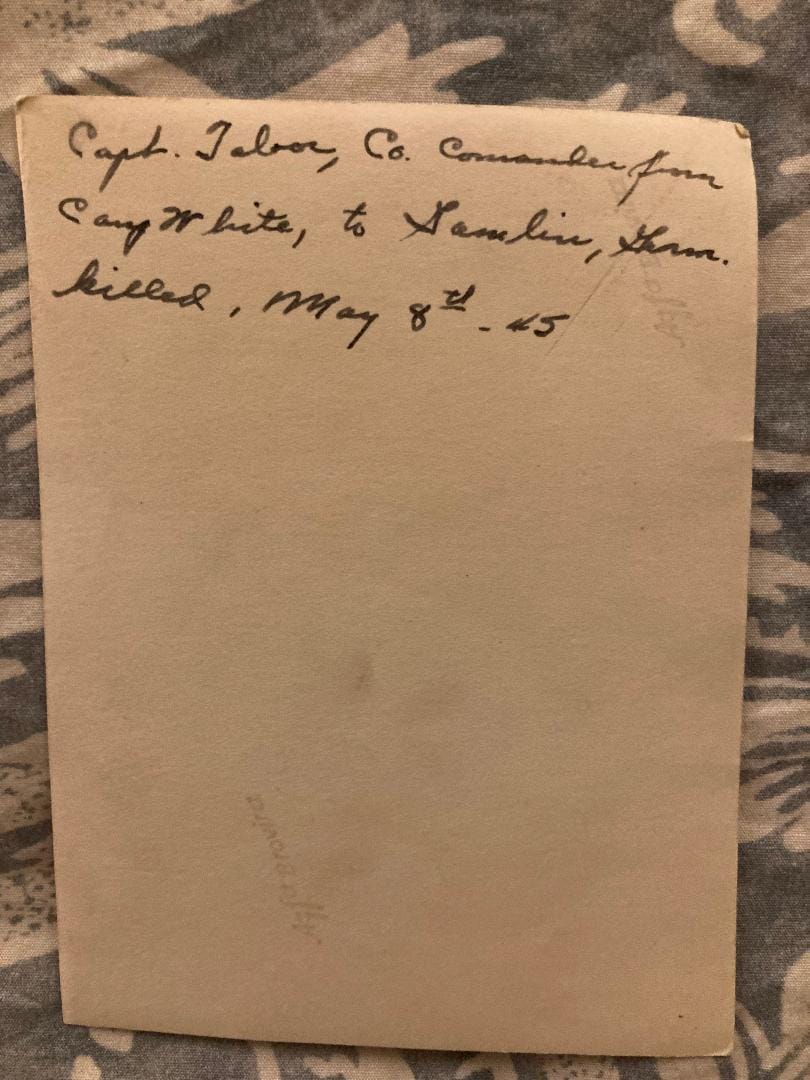 Capt. Tabor, Co. Comander from
Camp White, to Hamlin, Germ.
killed, May 8th - 45